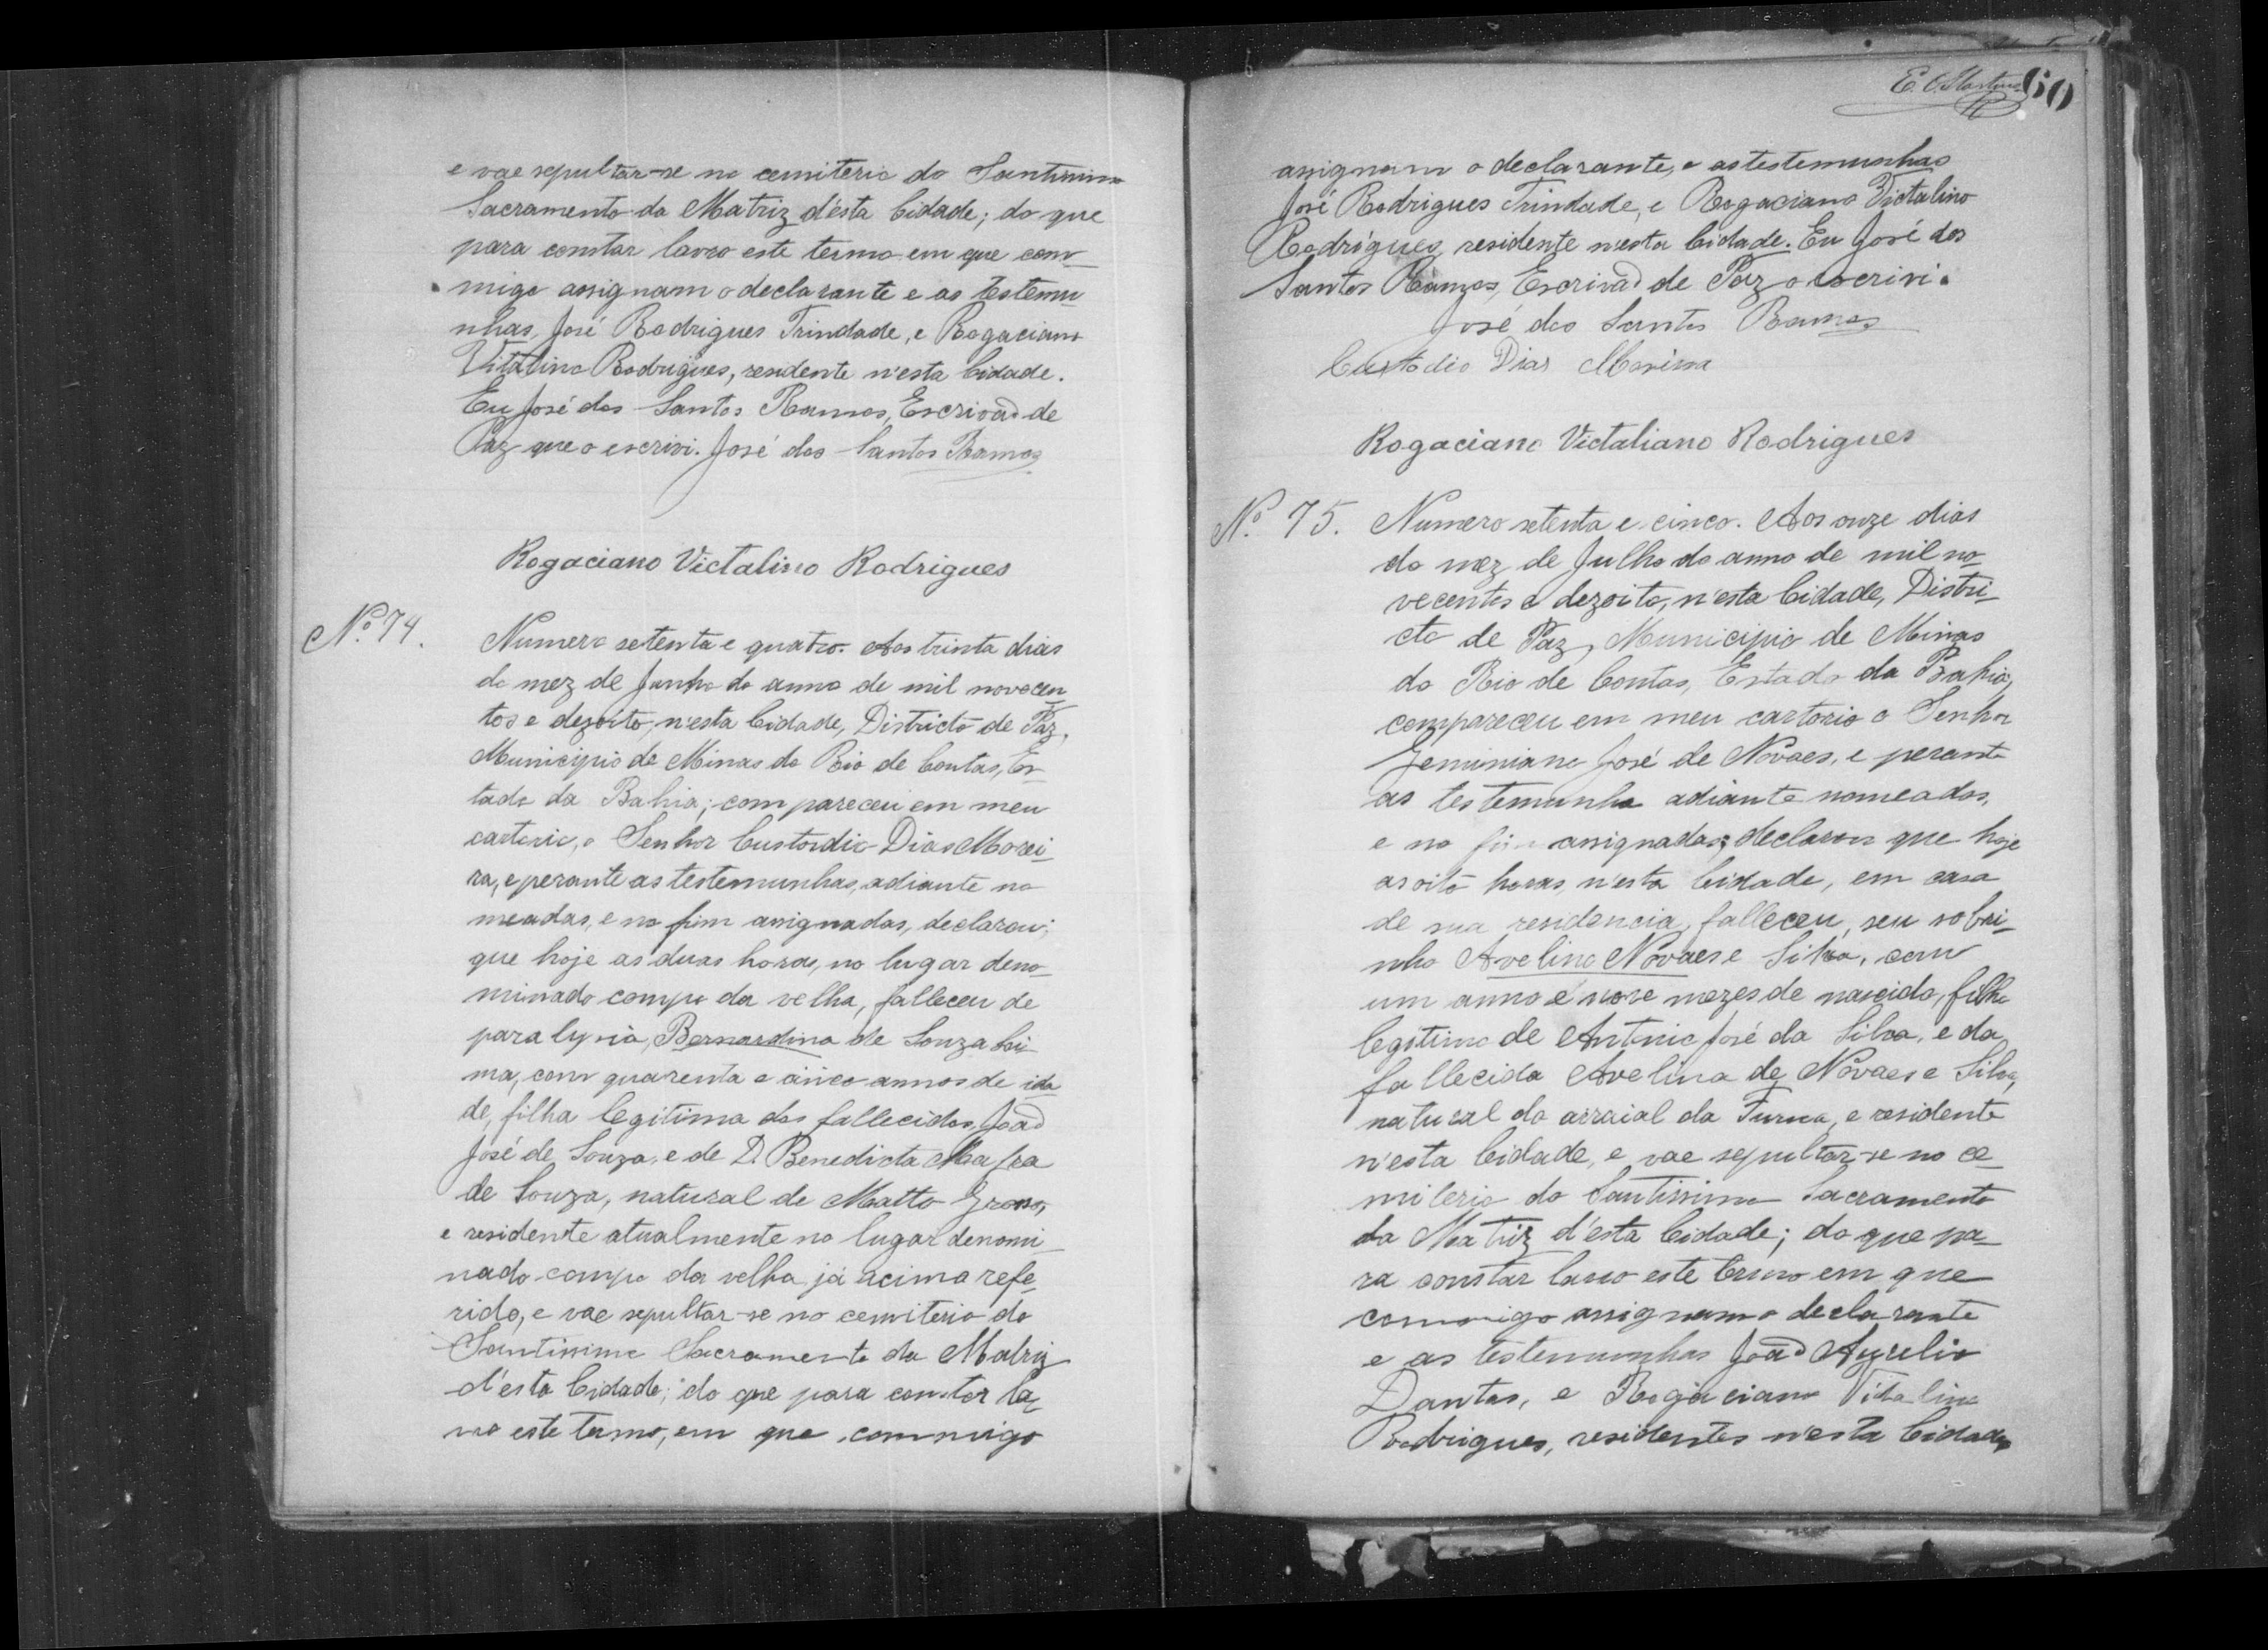 e vae sepultar-se no cemiterio do Santissimo
Sacramento da Matriz d'esta Cidade; do que
para constar lavro este termo em que com-
migo assignam o declarante e as testemu-
nhas, José Rodrigues Trindade, e Rogaciano
Vitalino Rodrigues, residente n'esta Cidade.
Eu José dos Santos Ramos, Escrivaõ de
Paz que o escrivi. José dos Santos Ramos
Rogaciano Victalino Rodrigues
Nº 74.
Numero setenta e quatro. Aos trinta dias
do mez de Junho do anno de mil novecen-
tos e dezoito, n'esta Cidade, Districto de Paz,
Municipio de Minas do Rio de Contas, Es-
tado da Bahia; compareceu em meu
cartorio, o Senhor Custordio Dias Morei-
ra, e perante as testemunhas, adiante no-
meadas, e no fim assignadas, declarou;
que hoje as duas horas, no lugar deno-
minado campo da velha, falleceu de
paralysia, Bernardina de Souza
ma, com quarenta e cinco annos de ida-
de, filha legitima dos fallecidos, Joaõ
José de Souza, e de D. Benedicta Mafra
de Souza, natural de Matto Grosso,
e residente atualmente no lugar denomi-
nado campo da velha já acima refe-
rido, e vae sepultar-se no cemiterio do
Santissimo Sacramento da Matriz
d'esta Cidade; do que para constar la-
vro este termo, em que commigo
E. O. Martins
60
assignam o declarante, e as testemunhas
José Rodrigues Trindade, e Rogaciano Victalino
Rodrigues, residente n'esta Cidade. Eu José dos
Santos Ramos, Escrivaõ de Paz o escrivi.
José dos Santos Ramos
Custodio Dias Moreira
Rogaciano Victaliano Rodrigues
Nº 75.
Numero setenta e cinco. Aos onze dias
do mez de Julho do anno de mil no-
vecentos e dezoito, n'esta Cidade, Distri-
cto de Paz, Municipio de Minas
do Rio de Contas, Estado da Bahia,
compareceu em meu cartorio o Senhor
Geminiano José de Nòvaes, e perante
as testemunha adiante nomeadas,
e no fim assignadas; declarou que hoje
as oito horas, n'esta Cidade, em casa
de sua residencia, falleceu, seu sobri-
nho Avelino Novaes e Silva, com
um anno e nove mezes de nascido, filho
legitimo de Antonio José da Silva, e da
fallecida Avelina de Nòvaes e Silva,
natural do arraial da Furna, e residente
n'esta Cidade, e vae sepultar-se no ce-
miterio do Santissimo Sacramento
da Matriz d'esta Cidade; do que pa-
ra constar lavro este termo em que
commigo assignam o declarante
e as testemunhas Joaõ Aurelio
Dantas, e Rogaciano Vitalino
Rodrigues, residentes n'esta Cidade